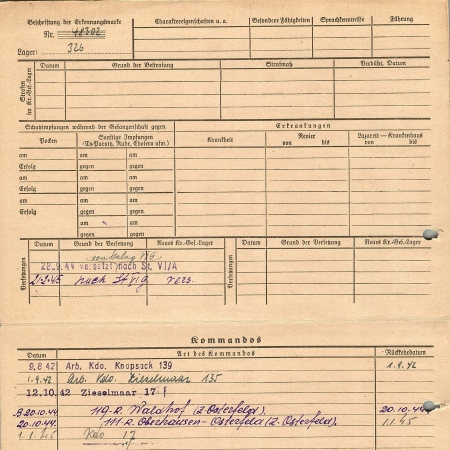 Beschriftung der Erkennungsmarke
Nr. 48302
Lager: 326
Charaktereigenschaften u. a.
Besondere Fähigkeiten
Sprachkenntnisse
Führung
Strafen im Kr.-Gef.-Lager
Datum
Grund der Bestrafung
Strafmaß
Verbüßt, Datum
Schutzimpfungen während der Gefangenschaft gegen
Erkrankungen
Pocken
Sonstige Impfungen
(Ty-Paraty, Ruhr, Cholera usw.)
Krankheit
Revier
von bis
Lazarett — Krankenhaus
von bis
am
am
gegen
Erfolg
am
gegen
am
am
gegen
Erfolg
am
gegen
am
am
gegen
Erfolg
am
gegen
Versetzungen
Datum
Grund der Versetzung
Neues Kr.-Gef.-Lager
Datum
Grund der Versetzung
Neues Kr.-Gef.-Lager
28.9.44 versetzt nach St. VI/A
nach vers.
Kommandos
Datum
Art des Kommandos
Rückkehrdatum
9.8.42 Arb. Kdo. Knapsack 139 1.9.42
1.9.42 Arb. Kdo. Zieselmaar 135
12.10.42 Zieselmaar 17
20.10.44 119-R. Waldhof (Z-Osterfeld). 20.10.44
20.10.44 111-R. Oberhausen-Osterfeld (Z. Osterfeld). 1.1.45
1.1.45 Kdo 17